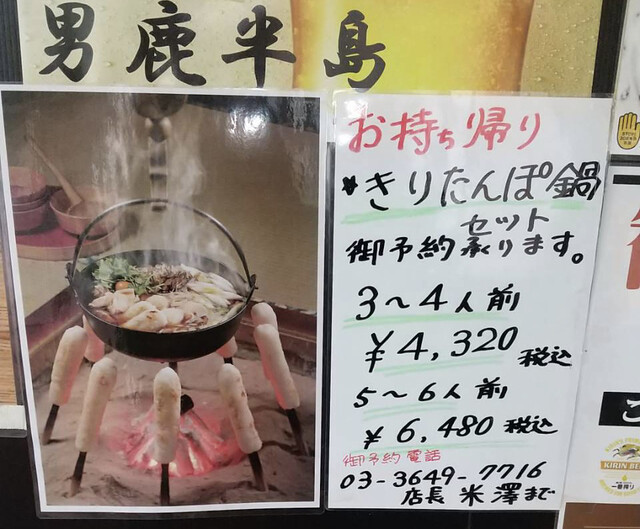 男鹿半島
お持ち帰り
*きりたんぽ鍋
セット
御予約承ります。
3〜4人前
¥4,320税込
5〜6人前
¥6,480税込
御予約電話
03-3649-7716
店長 米澤まで
KIRIN BE
一番搾り